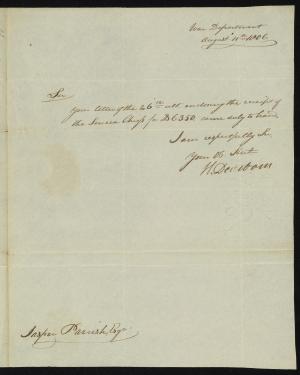 War Department
August 11th 1806
Sir
Your letter of the 26th ult. enclosing the receipt of
the Seneca Chiefs for D6350 came duly to hand
I am respectfully Sir
Your Ob. Servt
H. Dearborn
Jasper Parrish, Esqr.